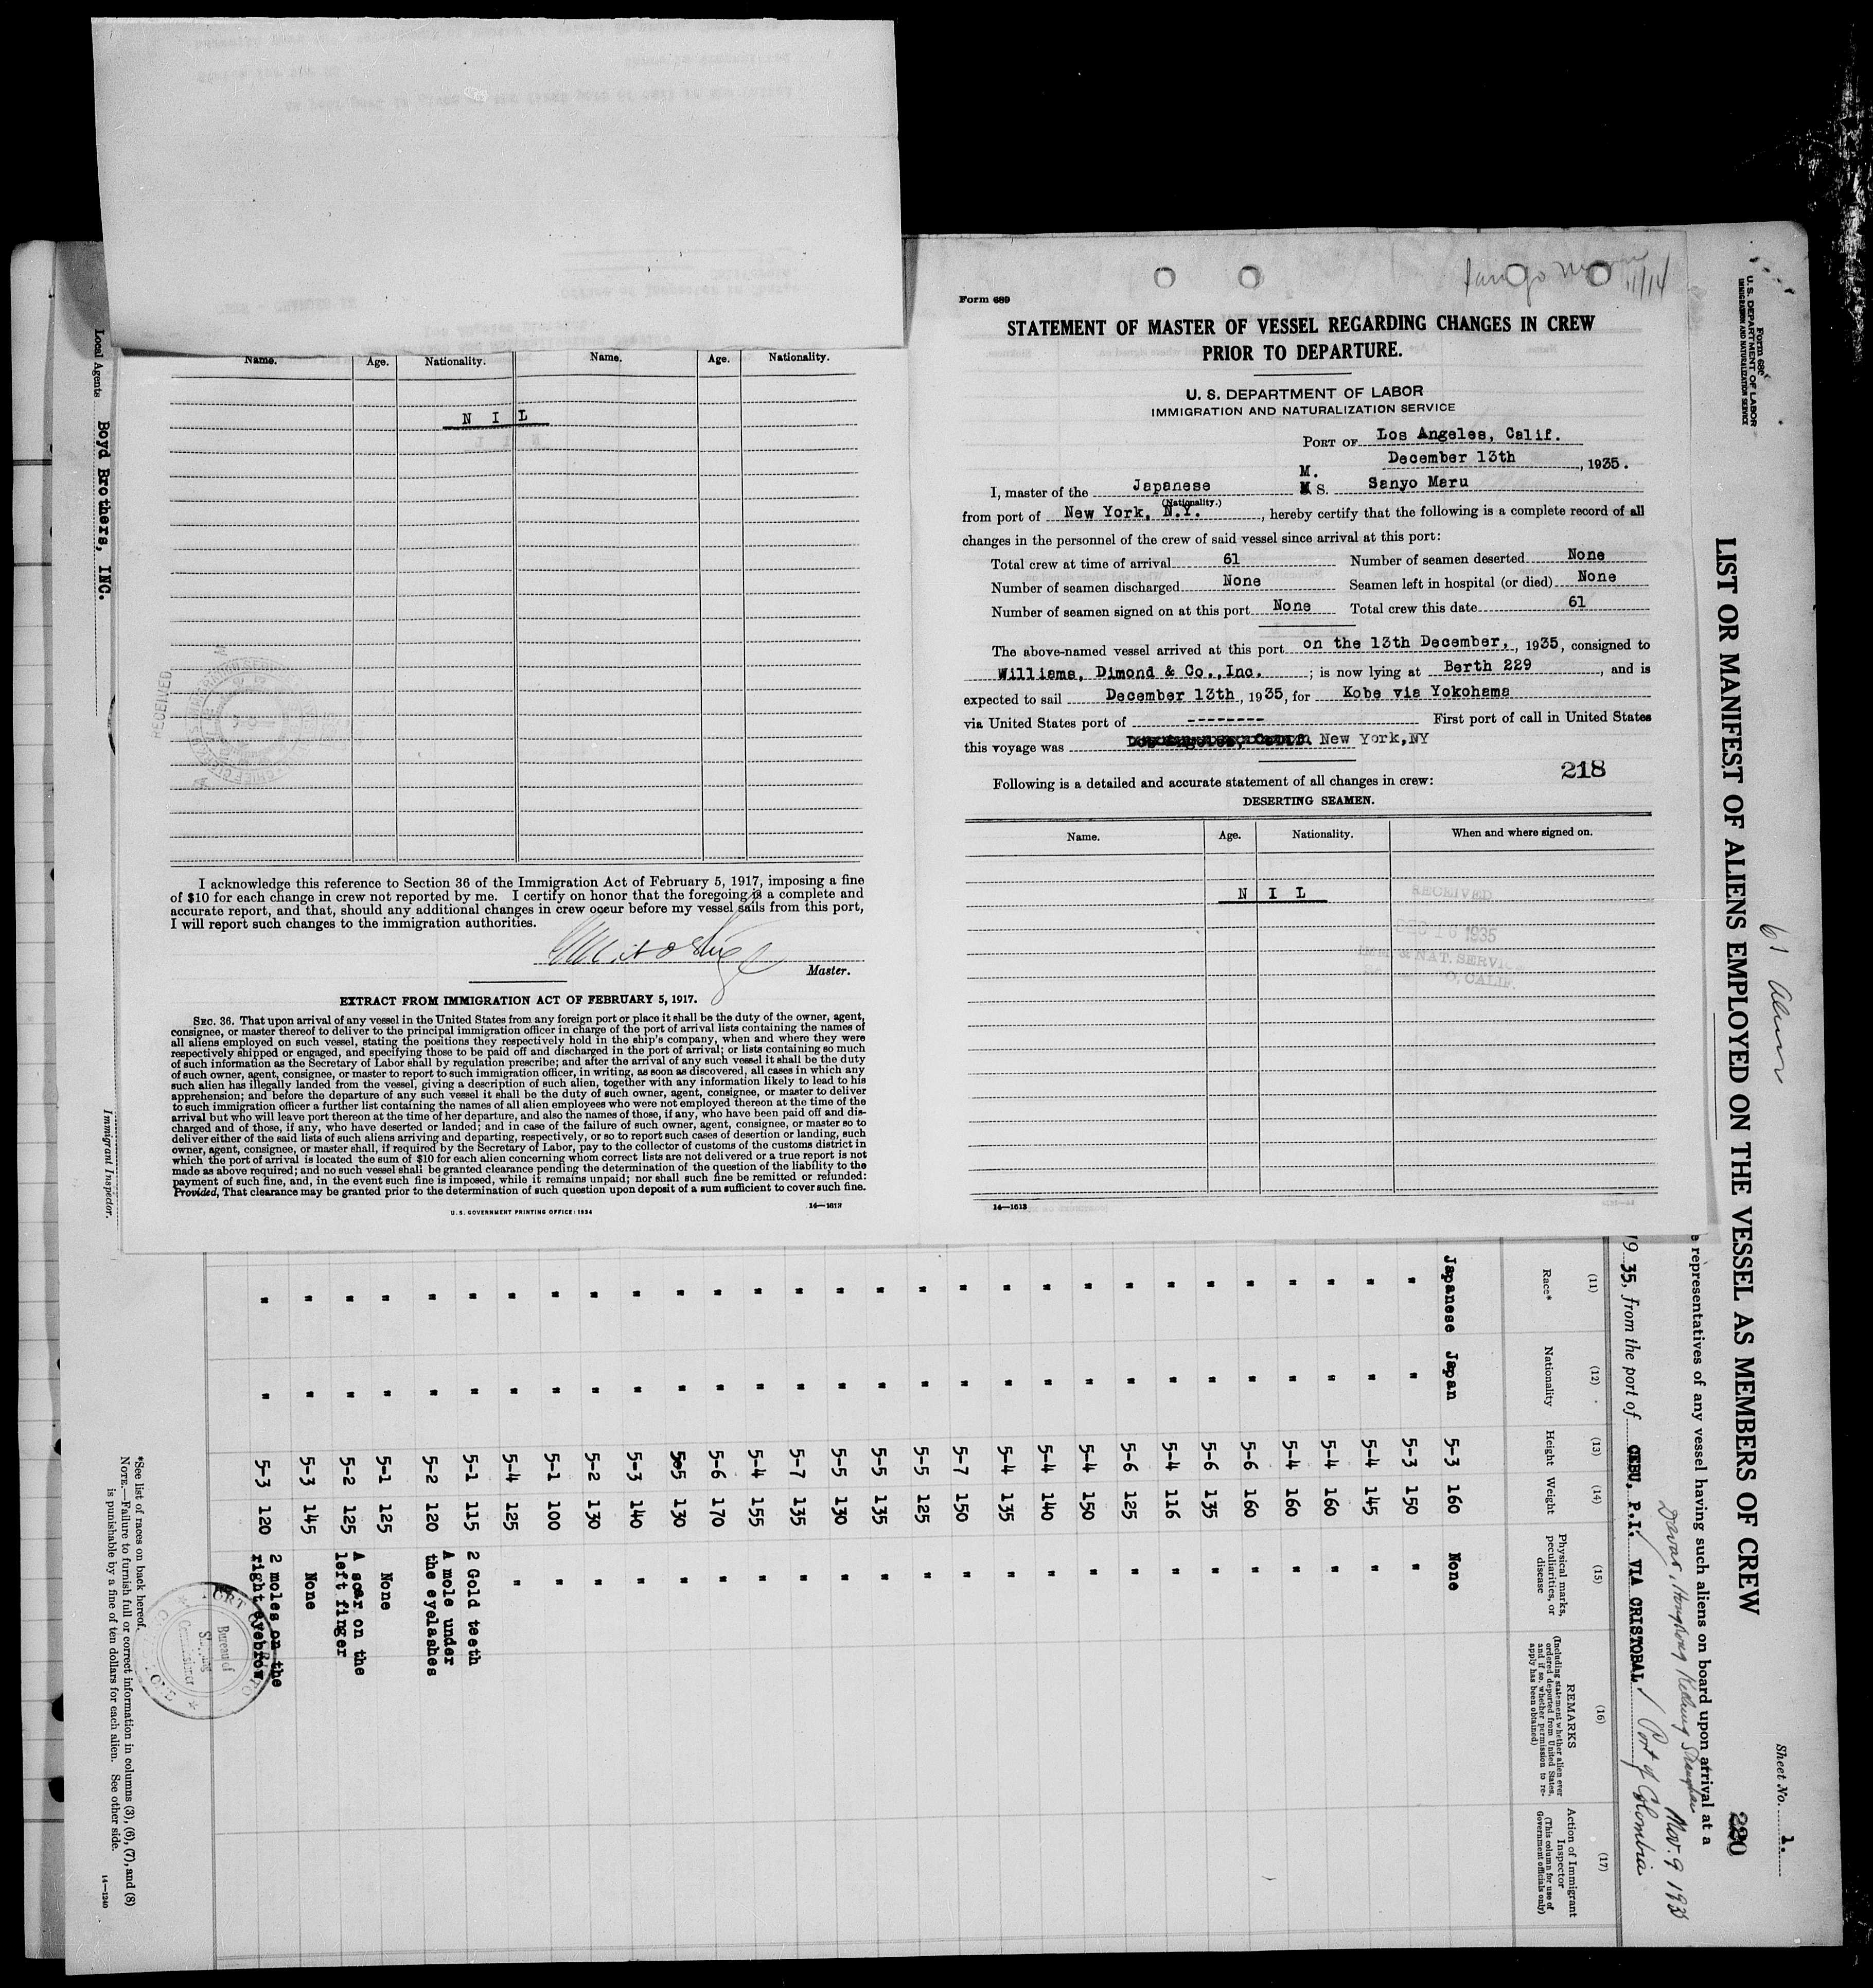 Name. Age. Nationality. Name. Age. Nationality.
N I L
I acknowledge this reference to Section 36 of the Immigration Act of February 5, 1917, imposing a fine
of $10 for each change in crew not reported by me. I certify on honor that the foregoing is a complete and
accurate report, and that, should any additional changes in crew occur before my vessel sails from this port,
I will report such changes to the immigration authorities.
Master.
EXTRACT FROM IMMIGRATION ACT OF FEBRUARY 5, 1917.
SEC. 36. That upon arrival of any vessel in the United States from any foreign port or place it shall be the duty of the owner, agent,
consignee, or master thereof to deliver to the principal immigration officer in charge of the port of arrival lists containing the names of
all aliens employed on such vessel, stating the positions they respectively hold in the ship's company, when and where they were
respectively shipped or engaged, and specifying those to be paid off and discharged in the port of arrival; or lists containing so much
of such information as the Secretary of Labor shall by regulation prescribe; and after the arrival of any such vessel it shall be the duty
of such owner, agent, consignee, or master to report to such immigration officer, in writing, as soon as discovered, all cases in which any
such alien has illegally landed from the vessel, giving a description of such alien, together with any information likely to lead to his
apprehension; and before the departure of any such vessel it shall be the duty of such owner, agent, consignee, or master to deliver
to such immigration officer a further list containing the names of all alien employees who were not employed thereon at the time of the
arrival but who will leave port thereon at the time of her departure, and also the names of those, if any, who have been paid off and dis-
charged and of those, if any, who have deserted or landed; and in case of the failure of such owner, agent, consignee, or master so to
deliver either of the said lists of such aliens arriving and departing, respectively, or so to report such cases of desertion or landing, such
owner, agent, consignee, or master shall, if required by the Secretary of Labor, pay to the collector of customs of the customs district in
which the port of arrival is located the sum of $10 for each alien concerning whom correct lists are not delivered or a true report is not
made as above required; and no such vessel shall be granted clearance pending the determination of the question of the liability to the
payment of such fine, and, in the event such fine is imposed, while it remains unpaid; nor shall such fine be remitted or refunded:
Provided, That clearance may be granted prior to the determination of such question upon deposit of a sum sufficient to cover such fine.
U. S. GOVERNMENT PRINTING OFFICE: 1934
14—1613
RECEIVED
11/14
Form 689
STATEMENT OF MASTER OF VESSEL REGARDING CHANGES IN CREW
PRIOR TO DEPARTURE.
U. S. DEPARTMENT OF LABOR
IMMIGRATION AND NATURALIZATION SERVICE
PORT OF Los Angeles, Calif.
December 13th, 1935.
I, master of the Japanese M. S. Sanyo Maru
(Nationality.)
from port of New York, N.Y., hereby certify that the following is a complete record of all
changes in the personnel of the crew of said vessel since arrival at this port:
Total crew at time of arrival 61 Number of seamen deserted None
Number of seamen discharged None Seamen left in hospital (or died) None
Number of seamen signed on at this port None Total crew this date 61
The above-named vessel arrived at this port on the 13th December, , 1935, consigned to
Williams, Dimond & Co.,Inc. ; is now lying at Berth 229 , and is
expected to sail December 13th, 1935, for Kobe via Yokohama
via United States port of -------- First port of call in United States
this voyage was New York,NY
218
Following is a detailed and accurate statement of all changes in crew:
DESERTING SEAMEN.
Name. Age. Nationality. When and where signed on.
N I L
RECEIVED
DEC 16 1935
IMM. & NAT. SERVI
O, CALIF.
14—1613
Form 689
U. S. DEPARTMENT OF LABOR
IMMIGRATION AND NATURALIZATION SERVICE
61
Sheet No. 1.
220
LIST OR MANIFEST OF ALIENS EMPLOYED ON THE VESSEL AS MEMBERS OF CREW
e representatives of any vessel having such aliens on board upon arrival at a
Davao, Hongkong Keelung Shanghai Nov. 9 1935
19 35, from the port of CEBU, P.I. VIA CRISTOBAL / Port of Colombia
(11) (12) (13) (14) (15) (16) (17)
Race* Nationality Height Weight Physical marks, peculiarities, or disease
REMARKS
(Including statement whether alien ever ordered deported from United States, and if so, whether permission to re-apply has been obtained)
Action of Immigrant Inspector
(This column for use of Government officials only)
Japanese Japan 5-3 160 None
" " 5-3 150 "
" " 5-4 145 "
" " 5-4 160 "
" " 5-4 160 "
" " 5-6 160 "
" " 5-6 135 "
" " 5-4 116 "
" " 5-6 125 "
" " 5-4 150 "
" " 5-4 140 "
" " 5-4 135 "
" " 5-7 150 "
" " 5-5 125 "
" " 5-5 135 "
" " 5-5 130 "
" " 5-7 135 "
" " 5-4 155 "
" " 5-6 170 "
" " 5-5 130 "
" " 5-3 140 "
" " 5-2 130 "
" " 5-1 100 "
" " 5-4 125 "
" " 5-1 115 2 Gold teeth
" " 5-2 120 A mole under
the eyelashes
" " 5-1 125 None
" " 5-2 125 A scar on the
left finger
" " 5-3 145 None
" " 5-3 120 2 moles on the
right eyebrow
Bureau of
Shipping
Commissioner
*See list of races on back hereof.
NOTE.—Failure to furnish full or correct information in columns (3), (6), (7), and (8)
is punishable by a fine of ten dollars for each alien. See other side.
14—1240
Local Agents Boyd Brothers, INC.
Immigrant Inspector.